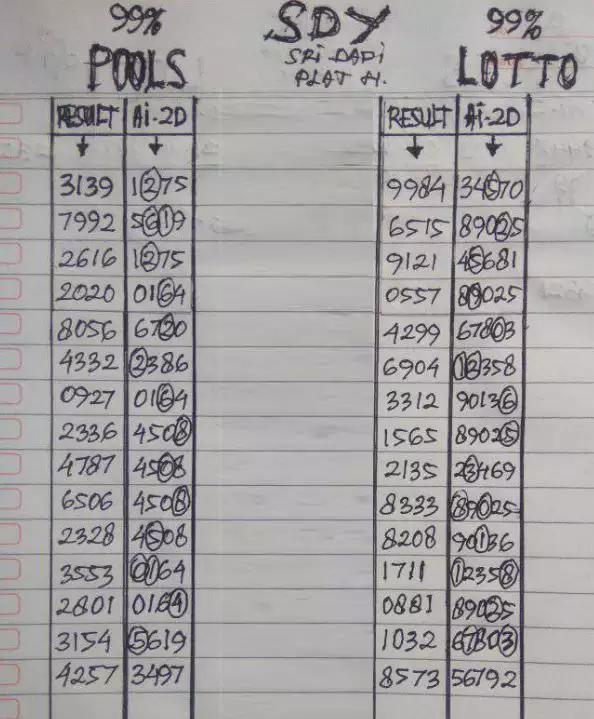 99% SDY 99%
POOLS SRI DADI LOTTO
PLAT H.
RESULT Ai-2D RESULT Ai-2D
3139 1275 9984 34570
7992 5619 6515 89025
2616 1275 9121 45681
2020 0164 0557 89025
8056 6720 4299 67803
4332 2386 6904 12358
0927 0164 3312 90136
2336 4508 1565 89025
4787 4508 2135 23469
6506 4508 8333 89025
2328 4508 8208 90136
3553 0164 1711 12358
2801 0164 0881 89025
3154 5619 1032 67803
4257 3497 8573 56792